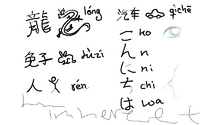 龍 lóng
兔子 tùzi
人 rén
汽车 qìchē
こ ko
ん n
に ni
ち chi
は wa
inherent